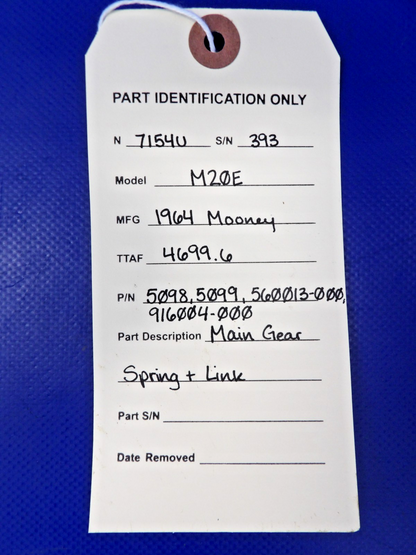 PART IDENTIFICATION ONLY
N 7154U S/N 393
Model M20E
MFG 1964 Mooney
TTAF 4699.6
P/N 5098, 5099, 560013-000,
916004-000
Part Description Main Gear
Spring + Link
Part S/N
Date Removed